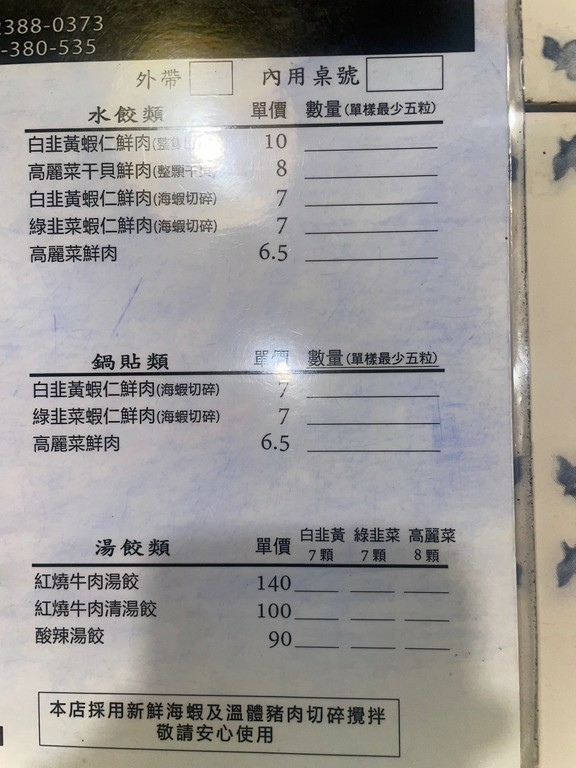 2388-0373
-380-535
外帶 內用桌號
水餃類 單價 數量(單樣最少五粒)
白韭黃蝦仁鮮肉 10
高麗菜干貝鮮肉(整顆干貝) 8
白韭黃蝦仁鮮肉(海蝦切碎) 7
綠韭菜蝦仁鮮肉(海蝦切碎) 7
高麗菜鮮肉 6.5
鍋貼類 單價 數量(單樣最少五粒)
白韭黃蝦仁鮮肉(海蝦切碎) 7
綠韭菜蝦仁鮮肉(海蝦切碎) 7
高麗菜鮮肉 6.5
湯餃類 單價 白韭黃 綠韭菜 高麗菜
7顆 7顆 8顆
紅燒牛肉湯餃 140
紅燒牛肉清湯餃 100
酸辣湯餃 90
本店採用新鮮海蝦及溫體豬肉切碎攪拌
敬請安心使用